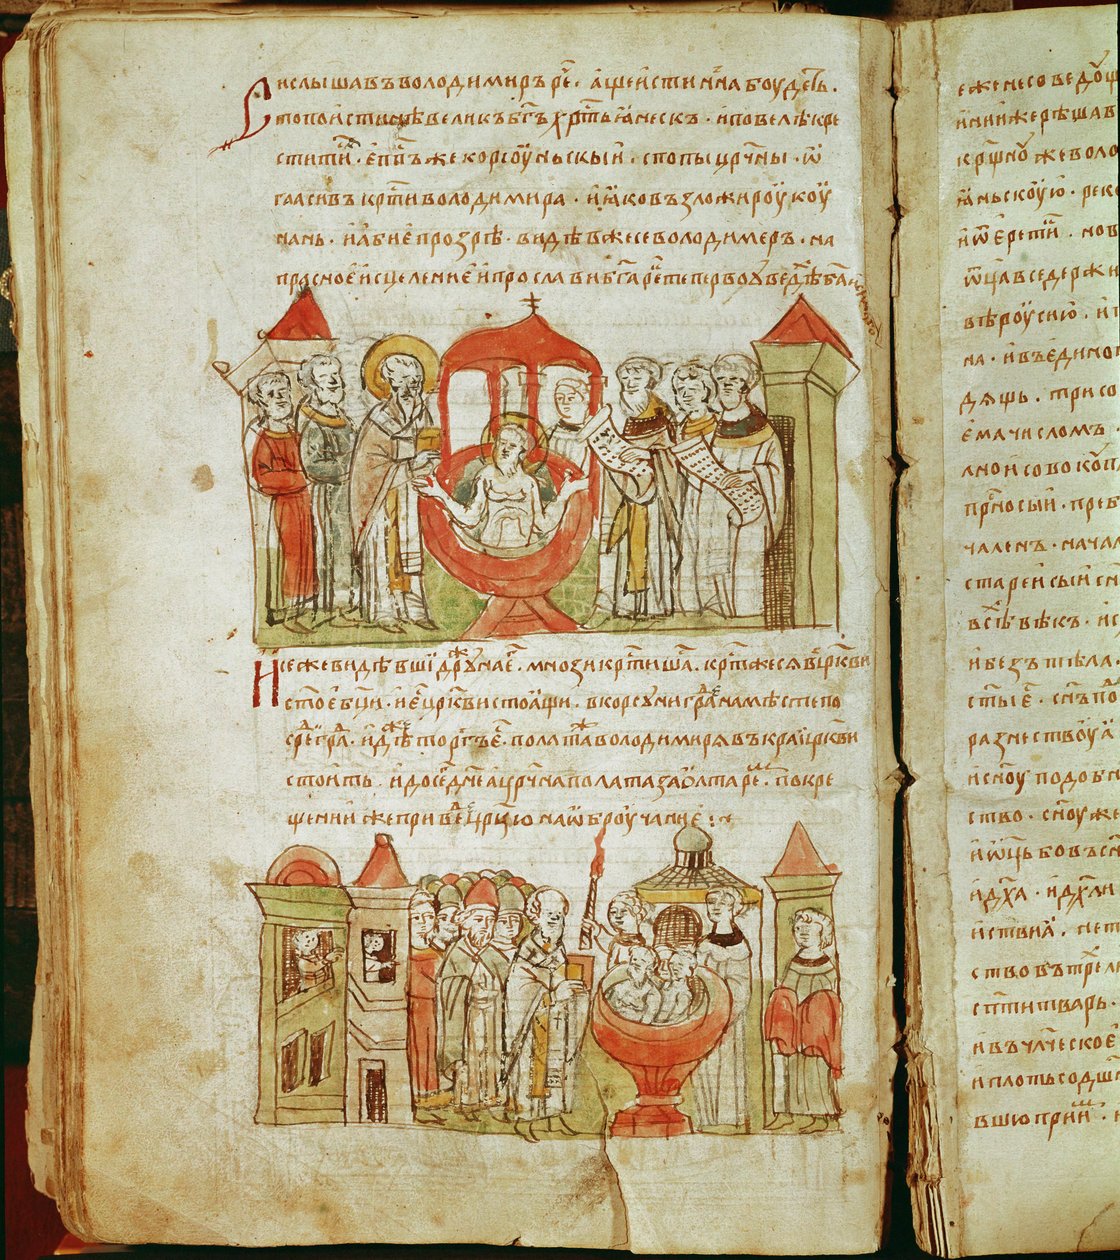 Си слышавъ володимиръ ре. аще истинна боудеть.
то поистинѣ великъ бг҃ъ хрт҃ьꙗнескъ. и повелѣ кре
стити. еп҃пъ же корсоуньскыи. с попы цр҃чны. ѿ
гласивъ крт҃и володимира. и ꙗко възложи роукоу
нань. и абиє прозрѣ. видѣвже се володимеръ. на
прасноє исцелениє и прослави бг҃а ре то первоє видѣ б҃а истиньна
И се же видѣвши дружина є. мнози крт҃ишаⷭ. крт҃ же сѧ в цр҃кви
стоє бц҃и. и є цр҃кви стоꙗщи. в корсуни градѣ на мѣсте по
среди град. идѣже торгъ є. полата же володимирѧ въ краи цр҃кви
стоить. и до сего дн҃е а цр҃чна полата за олтаре. по кре
щении же приведе цр҃цю на ѡброучаниє :~
еже несоведо
и ини же рѣша в
крщно же воло
ꙗньскоую. реко
и ѿ єретии. нов
ѿца вседержи
вѣроую сию. и
на. и въ єдино
дѧщь. три со
єма числомъ.
лно и совокоуп
прносыи. преб
чаленъ. начал
стареи сыи сн
всѣ вѣкъ. ис
и без тѣла.
стыє. снъ по
разнествоуꙗ
и сноу подобн
ство. сноу же
и ѿць бо въ сн
и дх҃а. и дх҃ли
иствиꙗ. нет
ство въ тре ли
спт҃и тварь.
и въ чл҃ческоє
и плоть содш
вшю прии.